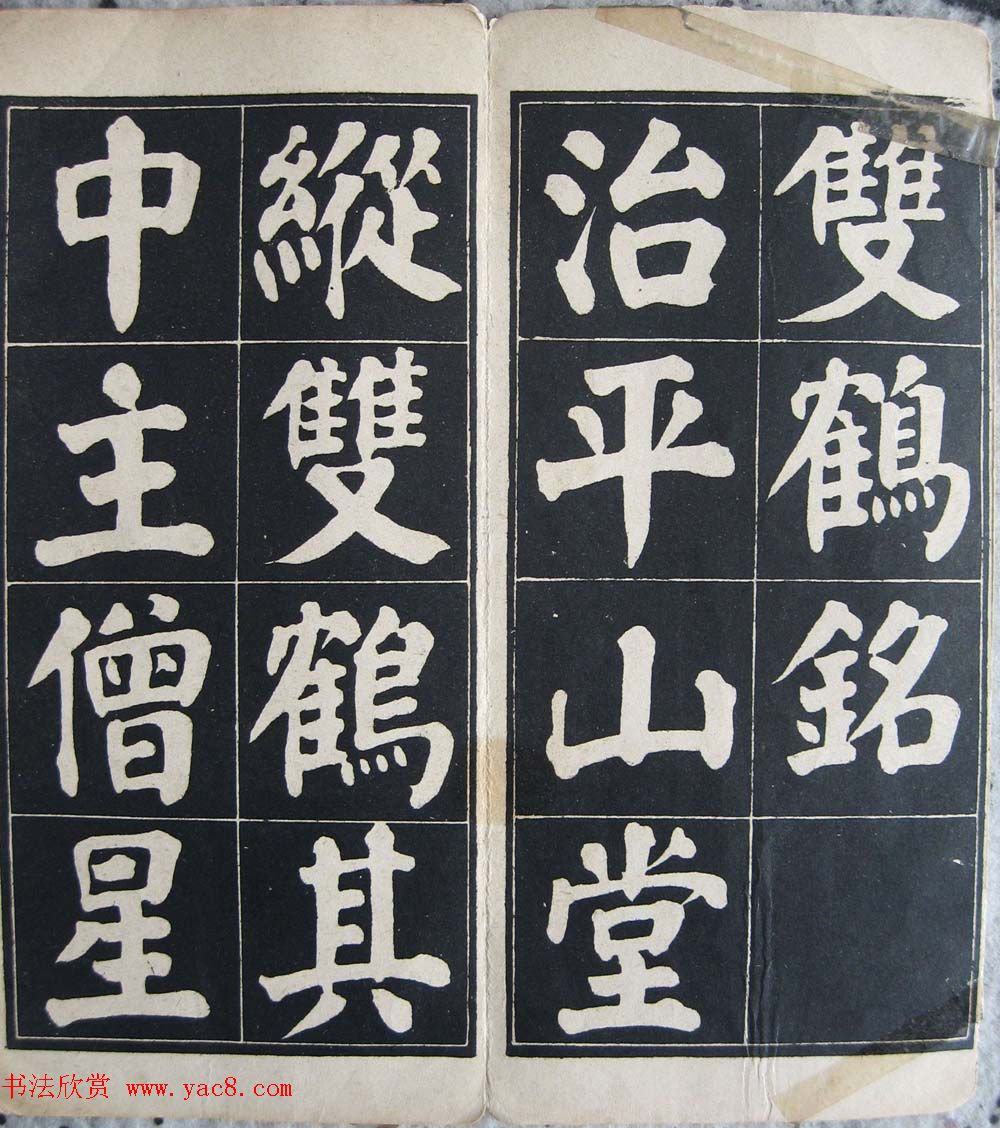 雙鶴銘
治平山堂
縱雙鶴其
中主僧星
书法欣赏 www.yac8.com